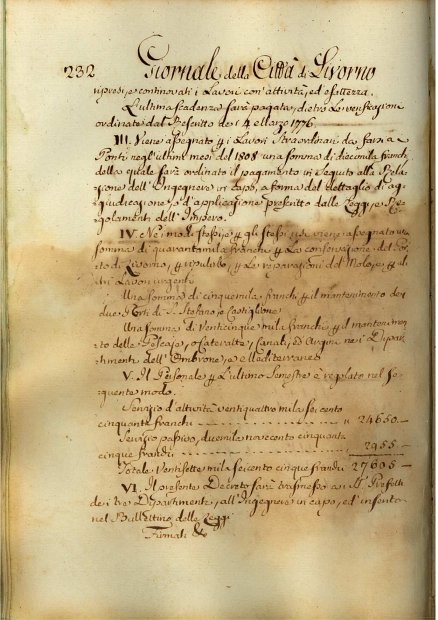 232 Giornale della Città di Livorno
riprosi, e continovati i Lavori con attività, ed esattezza.
L'ultima scadenza sarà pagata, dietro le verificazioni
ordinate dal Rescritto de' 4 Marzo 1776.
III. Viene assegnato p i Lavori Straordinari da farsi a
Ponti negl'ultimi mesi del 1808 una somma di diecimila franchi
della quale sarà ordinato il pagamento in seguito alla Rela
zione dell'Ingegnere in capo, a forma del dettaglio di ag
giudicazione, o d'applicazione prescritto dalle Leggi, e Re
golamenti dell'Impero.
IV. Nei modi stessi, e p gli stessi usi viene assegnata una
somma di quarantamila franchi p la conservazione del Por
to di Livorno, p ripulirlo, p le riparazioni del Molo, e p al
tri Lavori urgenti
Una somma di cinquemila franchi p il mantenimento dei
due Porti di S. Stefano, e Castiglione
Una somma di venticinque mila franchi p il mantenimen
to delle Pescaje, o Cateratte, Canali, ed Argini nei Dipar
timenti dell'Ombrone, e Mediterraneo
V. Il Personale p l'ultimo Semestre è regolato nel se
guente modo.
Servizio d'attività ventiquattro mila seicento
cinquanta franchi . . . . . . . . . . . . 24650.—
Servizio passivo, duemila novecento cinquanta
cinque franchi . . . . . . . . . . . . 2955—
Totale Ventisette mila seicento cinque franchi 27605—
VI. Il presente Decreto sarà trasmesso ai SS. Prefetti
dei tre Dipartimenti, all'Ingegnere in capo, ed inserito
nel Bullettino delle Leggi
Firmati &